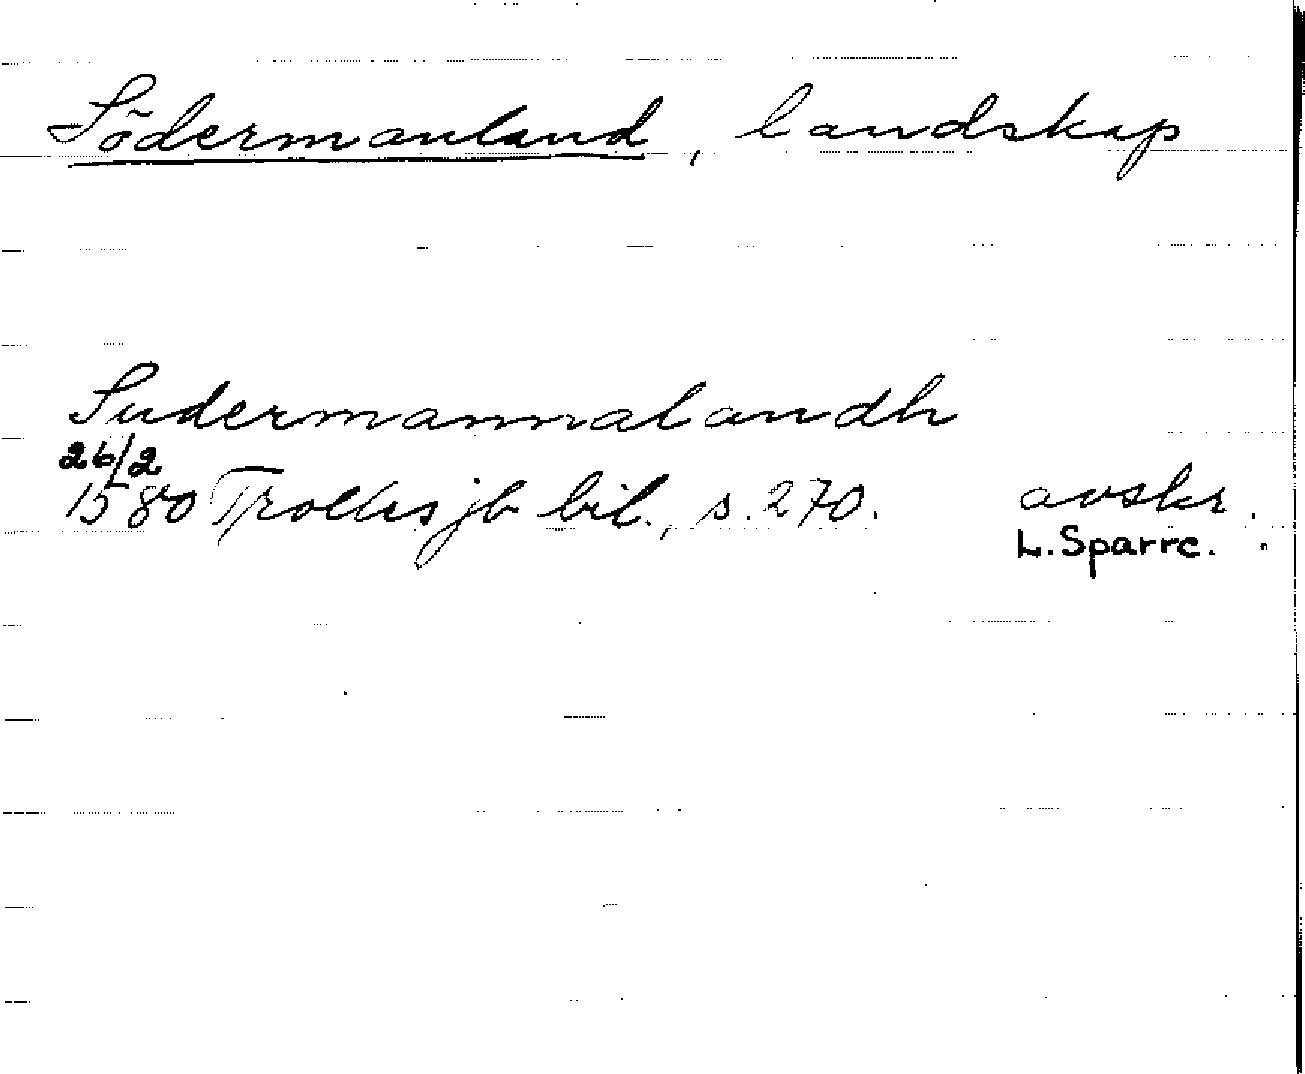 Södermanland, landskap
Sudermannalandh
26/2
1580 Trolles jb bil., s. 270. avskr.
L. Sparre.